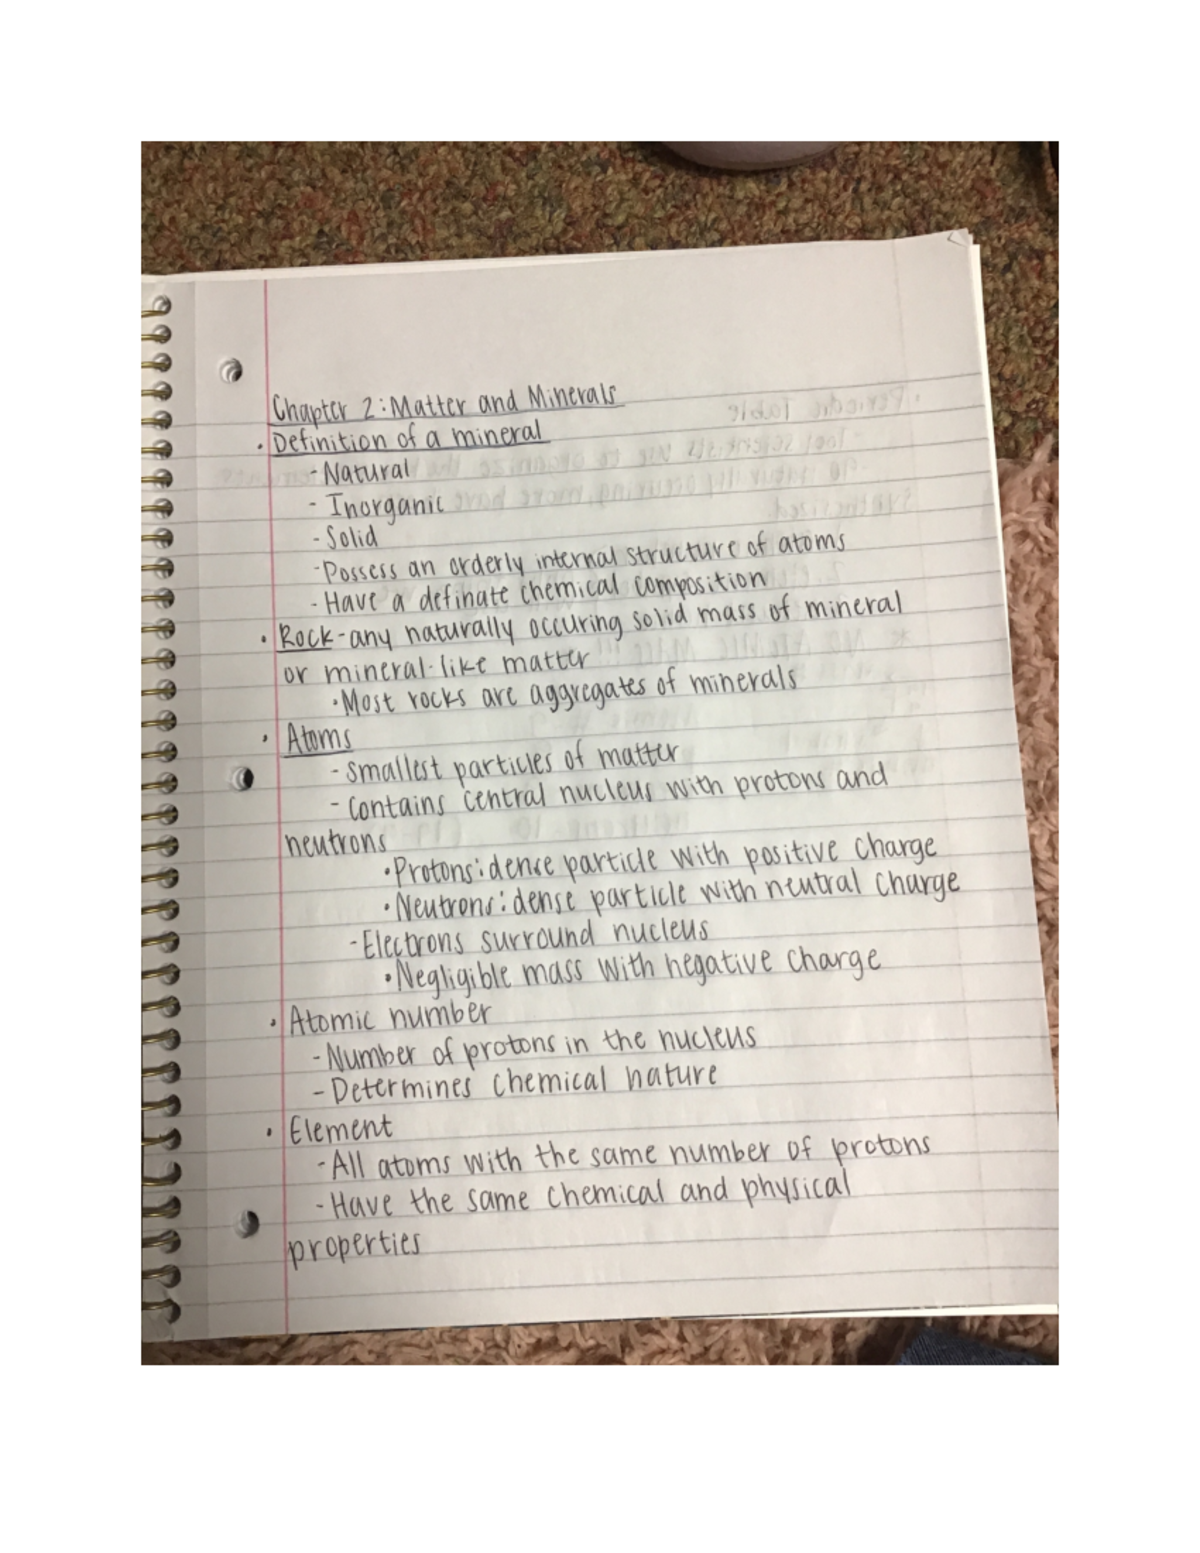 Chapter 2: Matter and Minerals
• Definition of a mineral
- Natural
- Inorganic
- Solid
- Possess an orderly internal structure of atoms
- Have a definate chemical composition
• Rock - any naturally occuring solid mass of mineral
or mineral-like matter
• Most rocks are aggregates of minerals
• Atoms
- smallest particles of matter
- contains central nucleus with protons and
neutrons
• Protons: dense particle with positive charge
• Neutrons: dense particle with neutral charge
- Electrons surround nucleus
• Negligible mass with negative charge
• Atomic number
- Number of protons in the nucleus
- Determines chemical nature
• Element
- All atoms with the same number of protons
- Have the same chemical and physical
properties